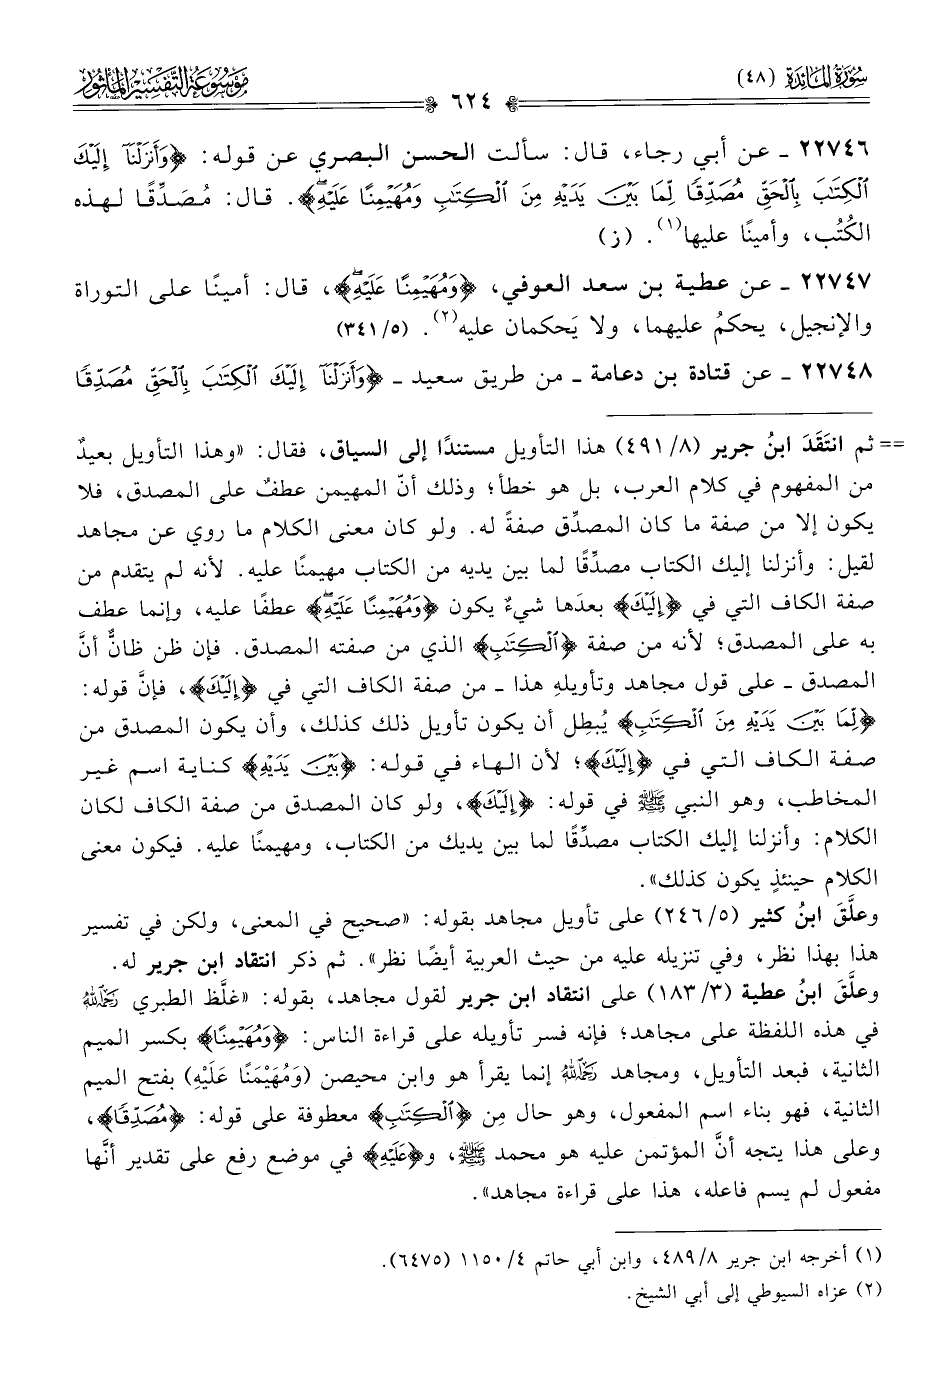 سُورَةُ المَائِدَة (٤٨)
٦٢٤
مَوْسُوعَة التَّفْسِير المَأثُور
٢٢٧٤٦ ـ عن أبي رجاء، قال: سألت الحسن البصري عن قوله: ﴿وَأَنزَلْنَآ إِلَيْكَ
ٱلْكِتَٰبَ بِٱلْحَقِّ مُصَدِّقًا لِّمَا بَيْنَ يَدَيْهِ مِنَ ٱلْكِتَٰبِ وَمُهَيْمِنًا عَلَيْهِۖ﴾. قال: مُصَدِّقًا لهذه
الكُتُب، وأمينًا عليها(١). (ز)
٢٢٧٤٧ ـ عن عطية بن سعد العوفي، ﴿وَمُهَيْمِنًا عَلَيْهِۖ﴾، قال: أمينًا على التوراة
والإنجيل، يحكمُ عليهما، ولا يَحكمان عليه(٢). (٣٤١/٥)
٢٢٧٤٨ ـ عن قتادة بن دعامة ـ من طريق سعيد ـ ﴿وَأَنزَلْنَآ إِلَيْكَ ٱلْكِتَٰبَ بِٱلْحَقِّ مُصَدِّقًا
== ثم انتَقَدَ ابنُ جرير (٤٩١/٨) هذا التأويل مستندًا إلى السياق، فقال: «وهذا التأويل بعيدٌ
من المفهوم في كلام العرب، بل هو خطأ؛ وذلك أنّ المهيمن عطفٌ على المصدق، فلا
يكون إلا من صفة ما كان المصدِّق صفةً له. ولو كان معنى الكلام ما روي عن مجاهد
لقيل: وأنزلنا إليك الكتاب مصدِّقًا لما بين يديه من الكتاب مهيمنًا عليه. لأنه لم يتقدم من
صفة الكاف التي في ﴿إِلَيْكَ﴾ بعدَها شيءٌ يكون ﴿وَمُهَيْمِنًا عَلَيْهِۖ﴾ عطفًا عليه، وإنما عطف
به على المصدق؛ لأنه من صفة ﴿ٱلْكِتَٰبِ﴾ الذي من صفته المصدق. فإن ظن ظانٌّ أنَّ
المصدق ـ على قول مجاهد وتأويلهِ هذا ـ من صفة الكاف التي في ﴿إِلَيْكَ﴾، فإنَّ قوله:
﴿لِمَا بَيْنَ يَدَيْهِ مِنَ ٱلْكِتَٰبِ﴾ يُبطِل أن يكون تأويل ذلك كذلك، وأن يكون المصدق من
صفة الكاف التي في ﴿إِلَيْكَ﴾؛ لأن الهاء في قوله: ﴿بَيْنَ يَدَيْهِ﴾ كناية اسم غير
المخاطب، وهو النبي ﷺ في قوله: ﴿إِلَيْكَ﴾، ولو كان المصدق من صفة الكاف لكان
الكلام: وأنزلنا إليك الكتاب مصدِّقًا لما بين يديك من الكتاب، ومهيمنًا عليه. فيكون معنى
الكلام حينئذٍ يكون كذلك».
وعلَّقَ ابنُ كثير (٢٤٦/٥) على تأويل مجاهد بقوله: «صحيح في المعنى، ولكن في تفسير
هذا بهذا نظر، وفي تنزيله عليه من حيث العربية أيضًا نظر». ثم ذكر انتقاد ابن جرير له.
وعلَّقَ ابنُ عطية (١٨٣/٣) على انتقاد ابن جرير لقول مجاهد، بقوله: «غلَّظ الطبري رَحِمَهُ اللهُ
في هذه اللفظة على مجاهد؛ فإنه فسر تأويله على قراءة الناس: ﴿وَمُهَيْمِنًا﴾ بكسر الميم
الثانية، فبعد التأويل، ومجاهد رَحِمَهُ اللهُ إنما يقرأ هو وابن محيصن (وَمُهَيْمَنًا عَلَيْهِ) بفتح الميم
الثانية، فهو بناء اسم المفعول، وهو حال مِن ﴿ٱلْكِتَٰبِ﴾ معطوفة على قوله: ﴿مُصَدِّقًا﴾،
وعلى هذا يتجه أنَّ المؤتمن عليه هو محمد ﷺ، و﴿عَلَيْهِ﴾ في موضع رفع على تقدير أنَّها
مفعول لم يسم فاعله، هذا على قراءة مجاهد».
(١) أخرجه ابن جرير ٤٨٩/٨، وابن أبي حاتم ١١٥٠/٤ (٦٤٧٥).
(٢) عزاه السيوطي إلى أبي الشيخ.